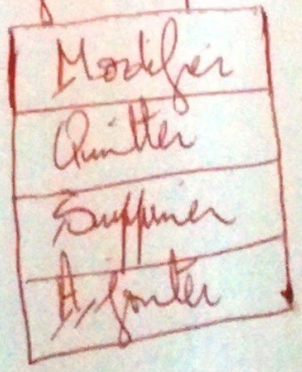 Modifier
Quitter
Supprimer
Ajouter